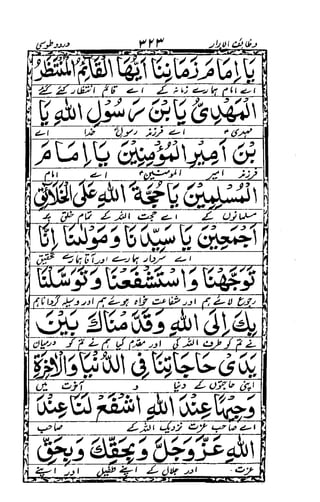 وظائف الابرار ٣٢٣ درود طوسی
يَا اِمَامَ زَمَانِنَا اَيُّهَا الْقَائِمُ الْمُنْتَظَرُ
اے امام ہمارے زمانہ کے اے قائم انتظار کئے گئے
الْمَهْدِيُّ يَا بْنَ رَسُوْلِ اللهِ يَا
مہدی اے فرزند رسول خدا اے
بْنَ اَمِيْرِ الْمُؤْمِنِيْنَ يَا اِمَامَ
فرزند امیر المومنین اے امام
الْمُسْلِمِيْنَ يَا حُجَّةَ اللهِ عَلَى الْخَلَائِقِ
مسلمانوں کے اے حجت اللہ کے تمام خلق پر
اَجْمَعِيْنَ يَا سَيِّدَنَا وَ مَوْلٰنَا اِنَّا
اے سردار ہمارے اور آقا ہمارے تحقیق
تَوَجَّهْنَا وَ اسْتَشْفَعْنَا وَ تَوَسَّلْنَا
رجوع لائے ہم اور شفاعت خواہ ہوئے ہم اور وسیلہ گردانا ہم
بِكَ اِلَى اللهِ وَ قَدَّمْنَاكَ بَيْنَ
نے تم کو طرف اللہ کی اور مقدم کیا ہم نے تم کو درمیان
يَدَىْ حَاجَاتِنَا فِى الدُّنْيَا وَ الْاٰخِرَةِ
اپنی حاجتوں کے دنیا و آخرت میں
وَجِيْهًا عِنْدَ اللهِ اشْفَعْ لَنَا عِنْدَ
اے صاحب عزت نزدیک اللہ کے صاحب
اللهِ عَزَّ وَ جَلَّ وَ بِحَقِّكَ وَ بِحَقِّ
عزت اور جلال کے اپنے طفیل اور اپنے